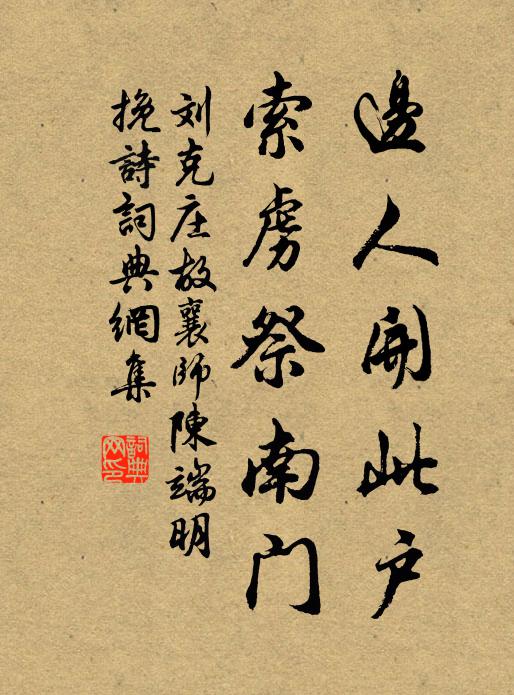 邊人開此户
索虜祭南门
刘克庄故襄师陳端明
挽詩詞典網集
詞典网印